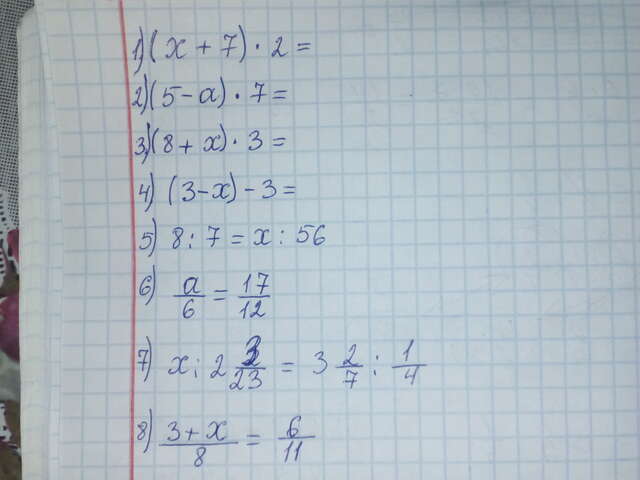 1) (x + 7) · 2 =
2) (5 - a) · 7 =
3) (8 + x) · 3 =
4) (3 - x) - 3 =
5) 8 : 7 = x : 56
6) a/6 = 17/12
7) x : 2 3/23 = 3 2/7 : 1/4
8) 3 + x/8 = 6/11